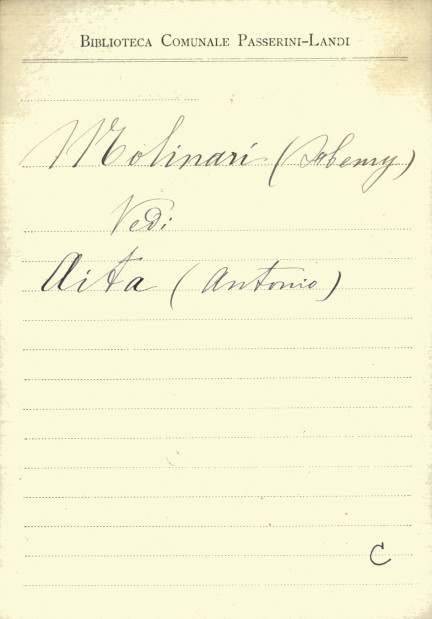 BIBLIOTECA COMUNALE PASSERINI-LANDI
Molinari
Vedi
Aita (Antonio)
C